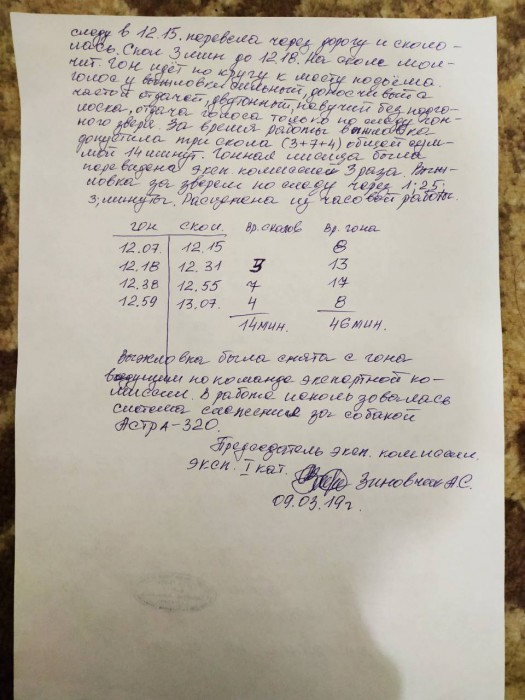 следу в 12.15. перевела через дорогу и сколо-
лась. Скол 3 мин до 12.18. На сколе мол-
чит. Гон идёт по кругу к месту подъёма.
Голос у выжловки сильный, доносчивый а
частой отдачей, двутонный, певучий без подго-
лоска, отдача голоса только по следу гон-
ного зверя. За время работы выжловка
допустила три скола (3+7+4) общей сум-
мой 14 минут. Гонная лисица была
перевидена эксп. комиссией 3 раза. Выж-
ловка за зверем по следу через 1; 2,5;
3; минуты. Расценена из часовой работы.
гон скол Вр. сколов Вр. гона
12.07. 12.15 8
12.18 12.31 3 13
12.38 12.55 7 17
12.59 13.07. 4 8
14мин. 46мин.
Выжловка была снята с гона
ведущим по команде экспертной ко-
миссии. В работе использовалась
система слежения за собакой
Астра-320.
Председатель эксп. комиссии.
эксп. I кат. Зиновчик А.С.
09.03.19г.